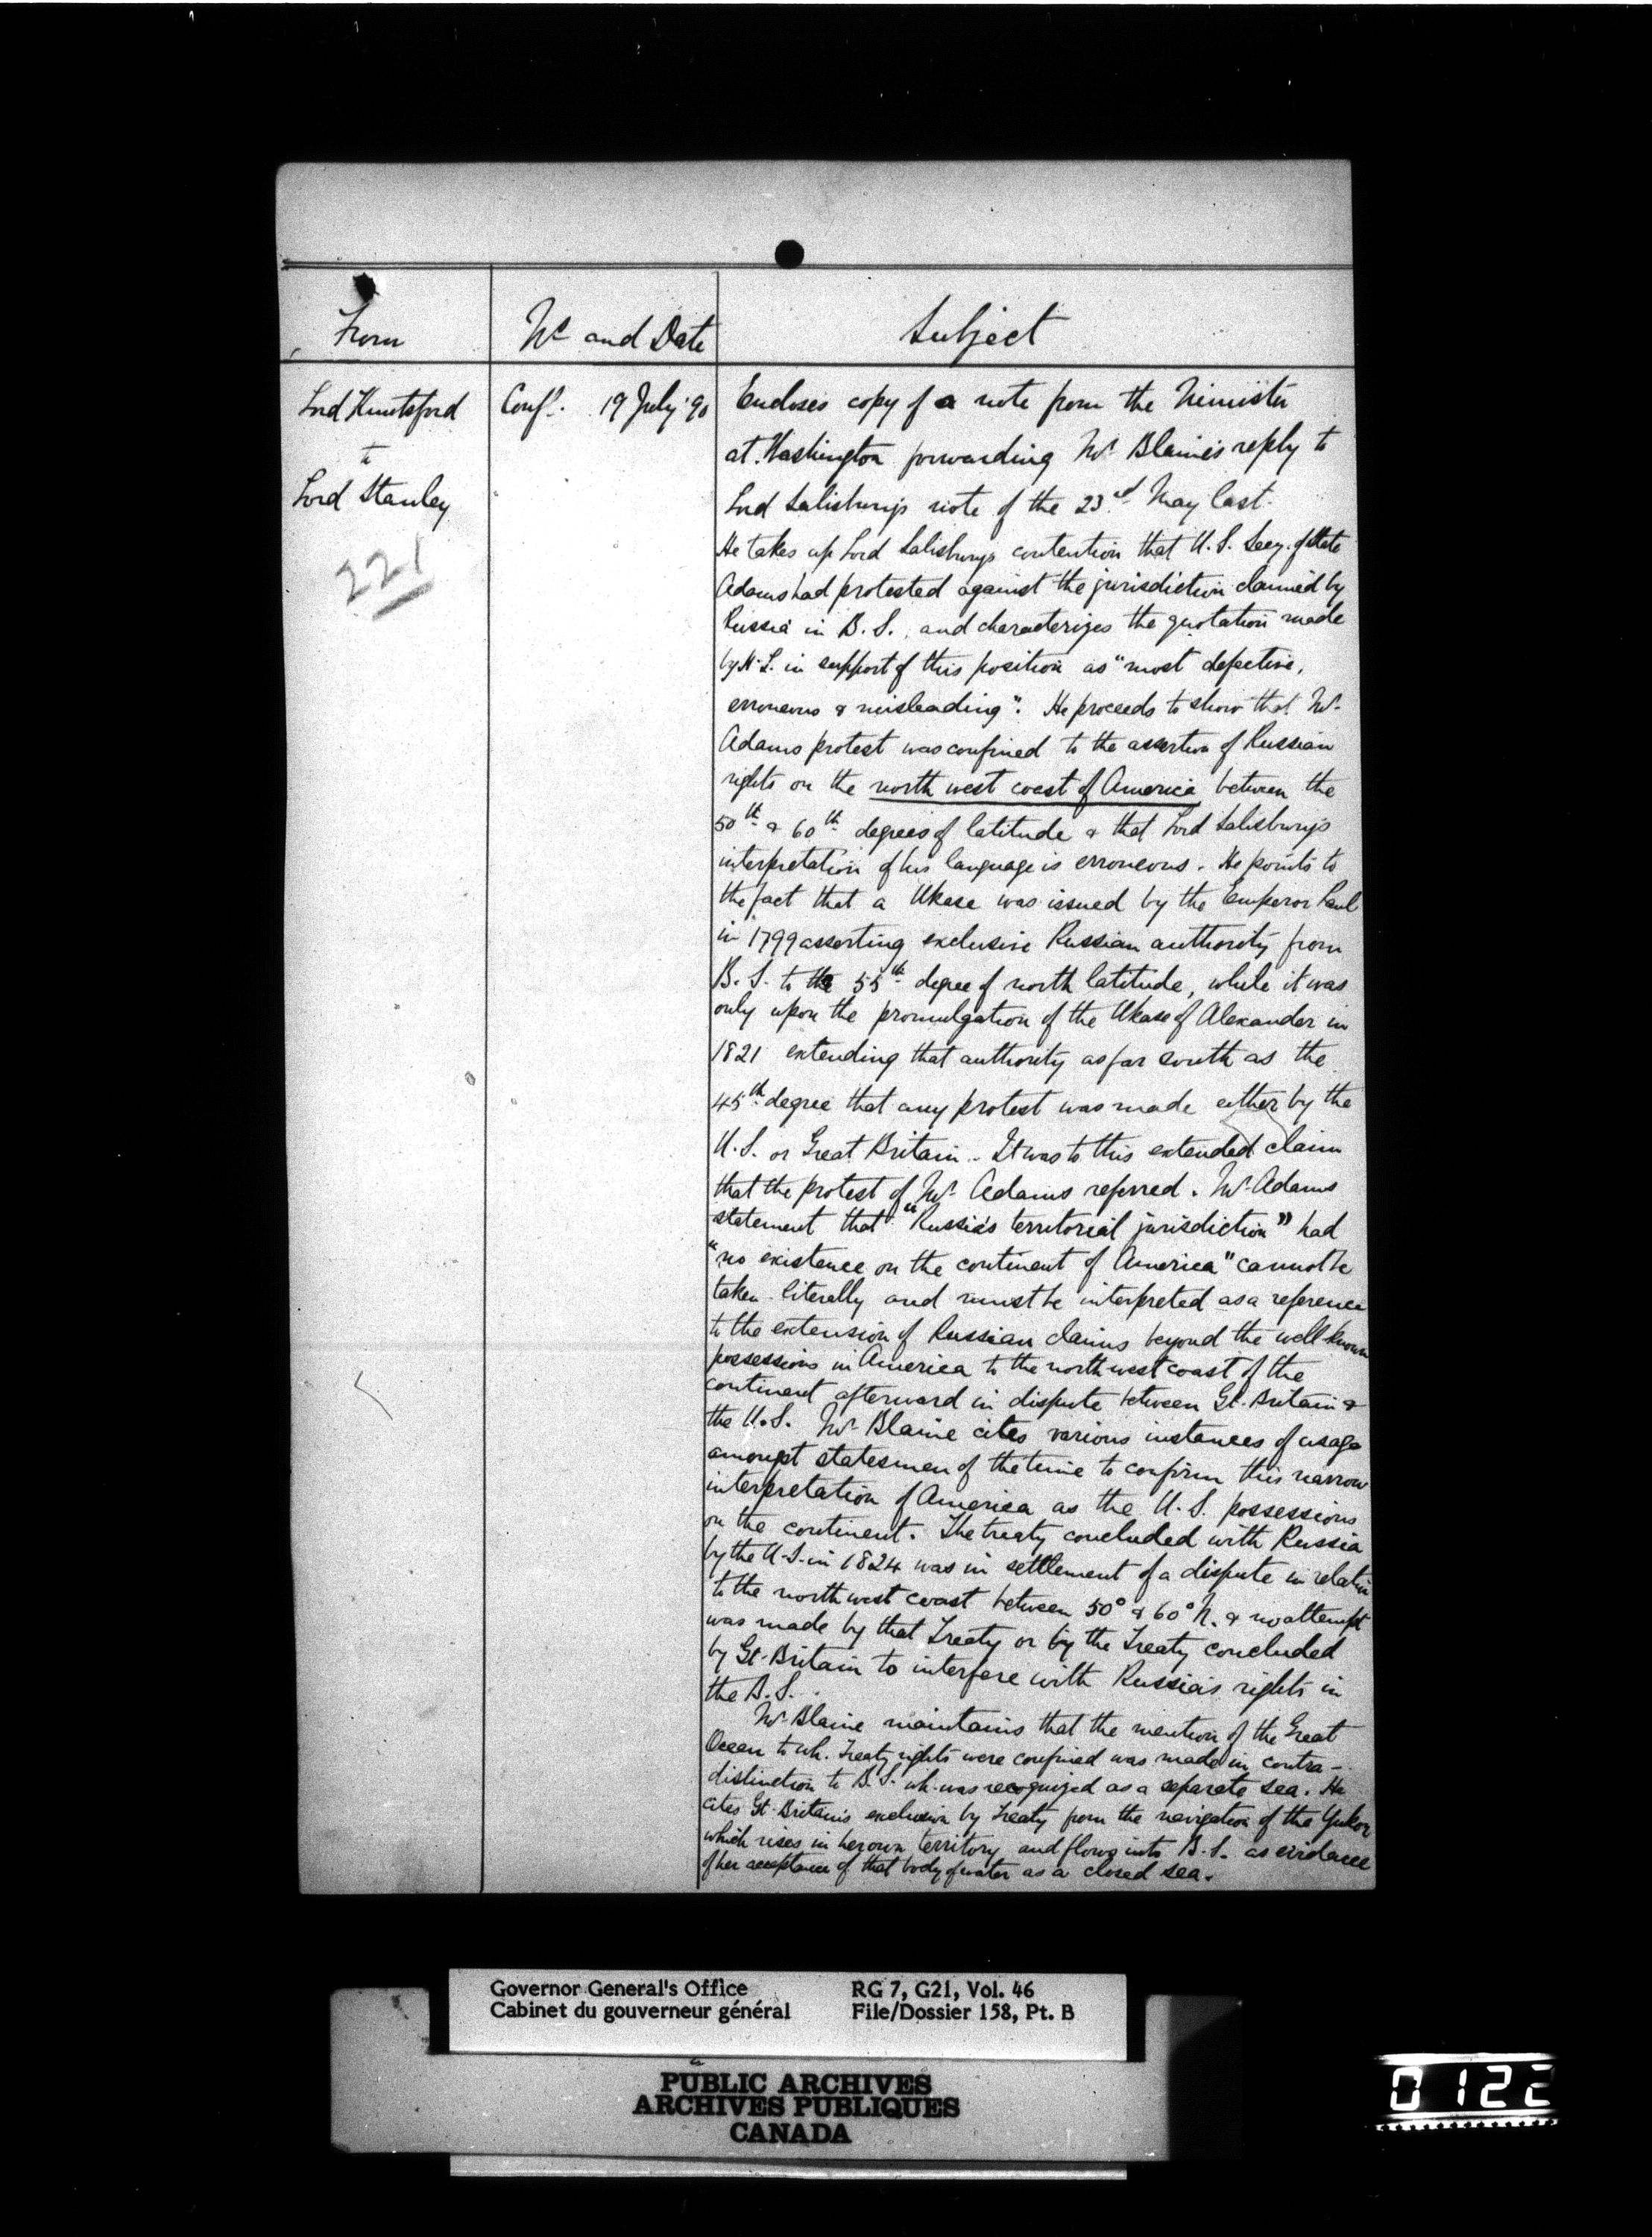 From
No and Date
Subject
Lord Knutsford
to
Lord Stanley
221
Confl. 19 July '90
Encloses copy of a note from the Minister
at Washington forwarding Mr Blaine's reply to
Lord Salisbury's note of the 23rd May last.
He takes up Lord Salisbury's contention that U.S. Secy. of State
Adams had protested against the jurisdiction claimed by
Russia in B.S., and characterizes the quotation made
by H.L. in support of this position as "most defective,
erroneous & misleading". He proceeds to show that Mr
Adams protest was confined to the assertion of Russian
rights on the north west coast of America between the
50th & 60th degrees of latitude & that Lord Salisbury's
interpretation of his language is erroneous. He points to
the fact that a Ukase was issued by the Emperor Paul
in 1799 asserting exclusive Russian authority from
B.S. to the 55th degree of north latitude, while it was
only upon the promulgation of the Ukase of Alexander in
1821 extending that authority as far south as the
45th degree that any protest was made either by the
U.S. or Great Britain. It was to this extended claim
that the protest of Mr Adams referred. Mr Adams
statement that "Russia's territorial jurisdiction" had
"no existence on the continent of America" cannot be
taken literally and must be interpreted as a reference
to the extension of Russian claims beyond the well known
possessions in America to the north west coast of the
continent afterward in dispute between Gt. Britain &
the U.S. Mr Blaine cites various instances of usage
amongst statesmen of the time to confirm this narrow
interpretation of America as the U.S. possessions
on the continent. The treaty concluded with Russia
by the U.S. in 1824 was in settlement of a dispute in relation
to the north west coast between 50° & 60° N. & no attempt
was made by that Treaty or by the Treaty concluded
by Gt. Britain to interfere with Russia's rights in
the B.S.
Mr Blaine maintains that the mention of the Great
Ocean to wh. Treaty rights were confined was made in contra-
distinction to B.S. wh. was recognized as a separate sea. He
cites Gt. Britain's exclusion by Treaty from the navigation of the Yukon
which rises in her own territory and flows into B.S. as evidence
of her acceptance of that body of water as a closed sea.
Governor General's Office
Cabinet du gouverneur général
RG 7, G21, Vol. 46
File/Dossier 158, Pt. B
PUBLIC ARCHIVES
ARCHIVES PUBLIQUES
CANADA
0122